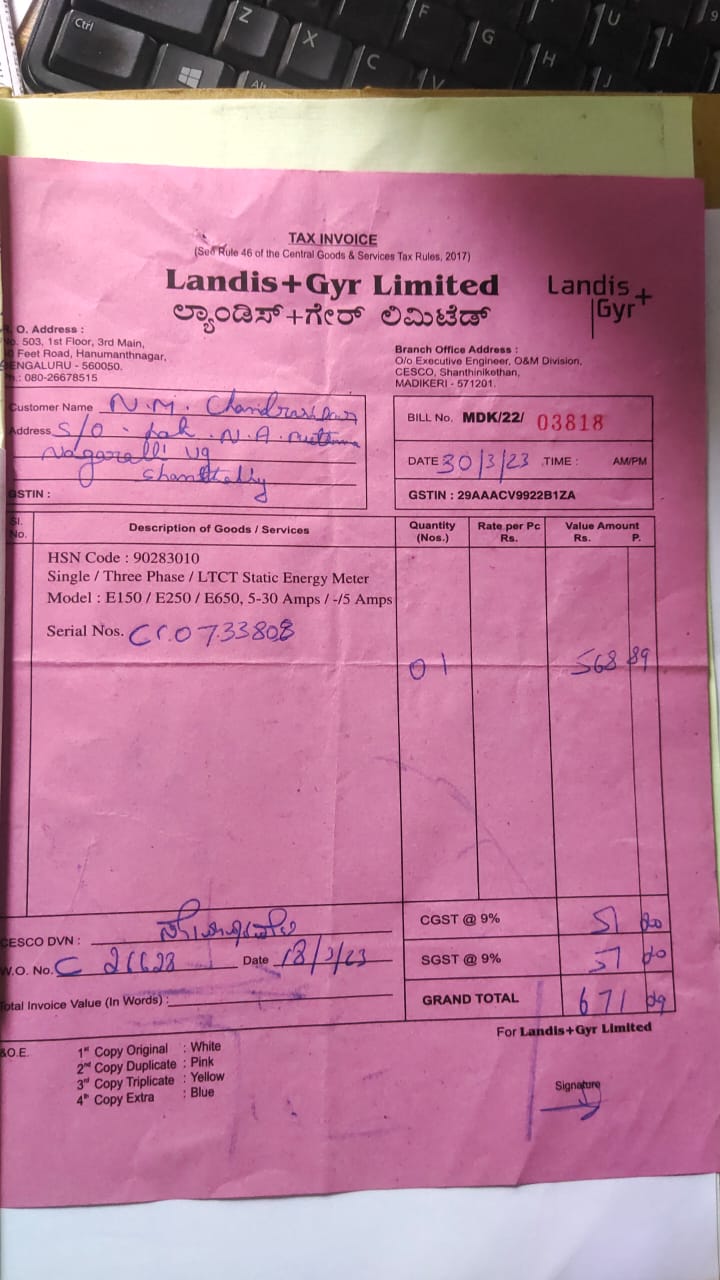 Ctrl
Z
X
C
V
F
G
H
J
U
Alt
TAX INVOICE
(See Rule 46 of the Central Goods & Services Tax Rules, 2017)
Landis+Gyr Limited
ಲ್ಯಾಂಡಿಸ್+ಗೇರ್ ಲಿಮಿಟೆಡ್
Landis+
Gyr
O. Address :
No. 503, 1st Floor, 3rd Main,
Feet Road, Hanumanthnagar,
BENGALURU - 560050.
Ph.: 080-26678515
Branch Office Address :
O/o Executive Engineer, O&M Division,
CESCO, Shanthinikethan,
MADIKERI - 571201.
Customer Name N.M. Chandrashekar
Address S/O N.A.
GSTIN :
BILL No. MDK/22/ 03818
DATE 30/3/23 TIME : AM/PM
GSTIN : 29AAACV9922B1ZA
Sl. No. Description of Goods / Services Quantity (Nos.) Rate per Pc Rs. Value Amount Rs. P.
HSN Code : 90283010
Single / Three Phase / LTCT Static Energy Meter
Model : E150 / E250 / E650, 5-30 Amps / -/5 Amps
Serial Nos. 0733808
01 568 89
CESCO DVN :
CGST @ 9% 51 20
W.O. No. C 26628 Date 18/3/23
SGST @ 9% 51 20
Total Invoice Value (In Words) :
GRAND TOTAL 671 29
For Landis+Gyr Limited
&O.E.
1st Copy Original : White
2nd Copy Duplicate : Pink
3rd Copy Triplicate : Yellow
4th Copy Extra : Blue
Signature